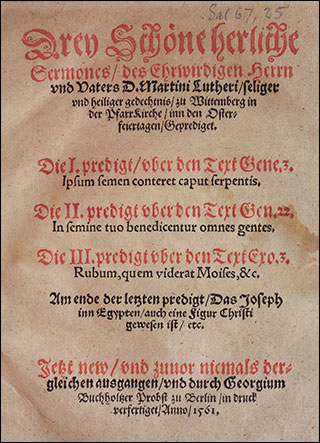 Sal 67, 25
Drey Schöne herliche
Sermones/ des Ehrwirdigen Herrn
vnd Vaters D. Martini Lutheri/ seliger
vnd heiliger gedechtnis/ zu Wittemberg in
der PfarrKirche/ inn den Oster-
feiertagen/ Geprediget.
Die I. predigt/ vber den Text Gene. 3.
Ipsum semen conteret caput serpentis.
Die II. predigt vber den Text Gen. 22.
In semine tuo benedicentur omnes gentes.
Die III. predigt vber den Text Exo. 3.
Rubum, quem viderat Moises, &c.
Am ende der letzten predigt/ Das Joseph
inn Egypten/ auch eine Figur Christi
gewesen ist/ etc.
Jetzt new/ vnd zuuor niemals der-
gleichen ausgangen/ vnd durch Georgium
Buchholtzer Probst zu Berlin/ in druck
verfertiget/ Anno/ 1561.